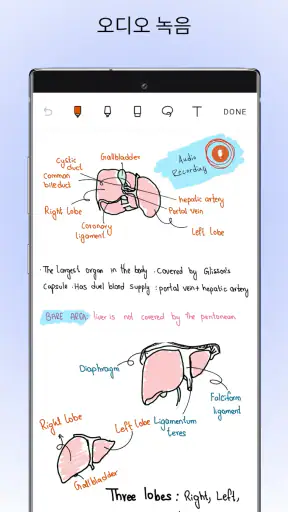 오디오 녹음
DONE
Cystic
duct
Gallbladder
Common
bile duct
Audio
Recording
Right lobe
hepatic artery
Portal vein
Coronary
ligament
Left lobe
· The largest organ in the body · Covered by Glisson's
Capsule · Has duel bland supply : portal vein + hepatic artery
BARE AREA: liver is not covered by the peritoneum
Diaphragm
Falciform
ligament
Right lobe
Left lobe
Ligamentum
teres
Gallbladder
Three lobes : Right, Left,